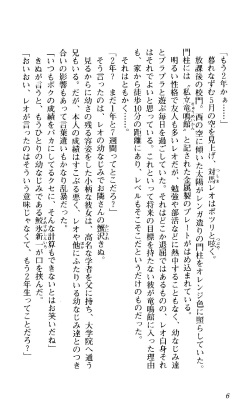 「もう2年かぁ……」
暮れなずむ5月の空を見上げ、対馬レオはポツリと呟く。
放課後の校門。西の空に傾いた太陽がレンガ造りの門柱をオレンジ色に照らしていた。
門柱には、『私立竜鳴館』と記された金属製のプレートがはめ込まれている。
明るい性格で友人も多いレオだが、勉強や部活などに熱中することもなく、幼なじみ達
とブラブラと遊ぶ毎日を過ごしていた。それはどこか退屈ではあるものの、レオ自身それ
はそれでよいと思っている。これといって将来の目標を持たない彼が竜鳴館に入った理由
も、家から徒歩10分の距離にあり、レベルもそこそこだというだけのものだった。
それはともかく……。
「2年？　まだ1年と7週間ってとこだろ？」
そう言ったのは、レオの幼なじみでお隣さんの蟹沢きぬ。
見るからに幼さの残る容姿をした小柄な彼女は、高名な学者を父に持ち、大学院へ通う
兄もいる。だが、本人の成績はすこぶる悪く、レオや他にふたりいる幼なじみ達とのつき
合いの影響もあって言葉遣いもかなり乱暴だった。
「いつもボクの成績をバカにしてるクセに、そんな計算もできないとはお笑いだね」
きぬが言うと、もうひとりの幼なじみである鮫氷新一が口を挟んだ。
「おいおい、レオが言ったのはそういう意味じゃなくて、もう2年生ってことだろ？」
6